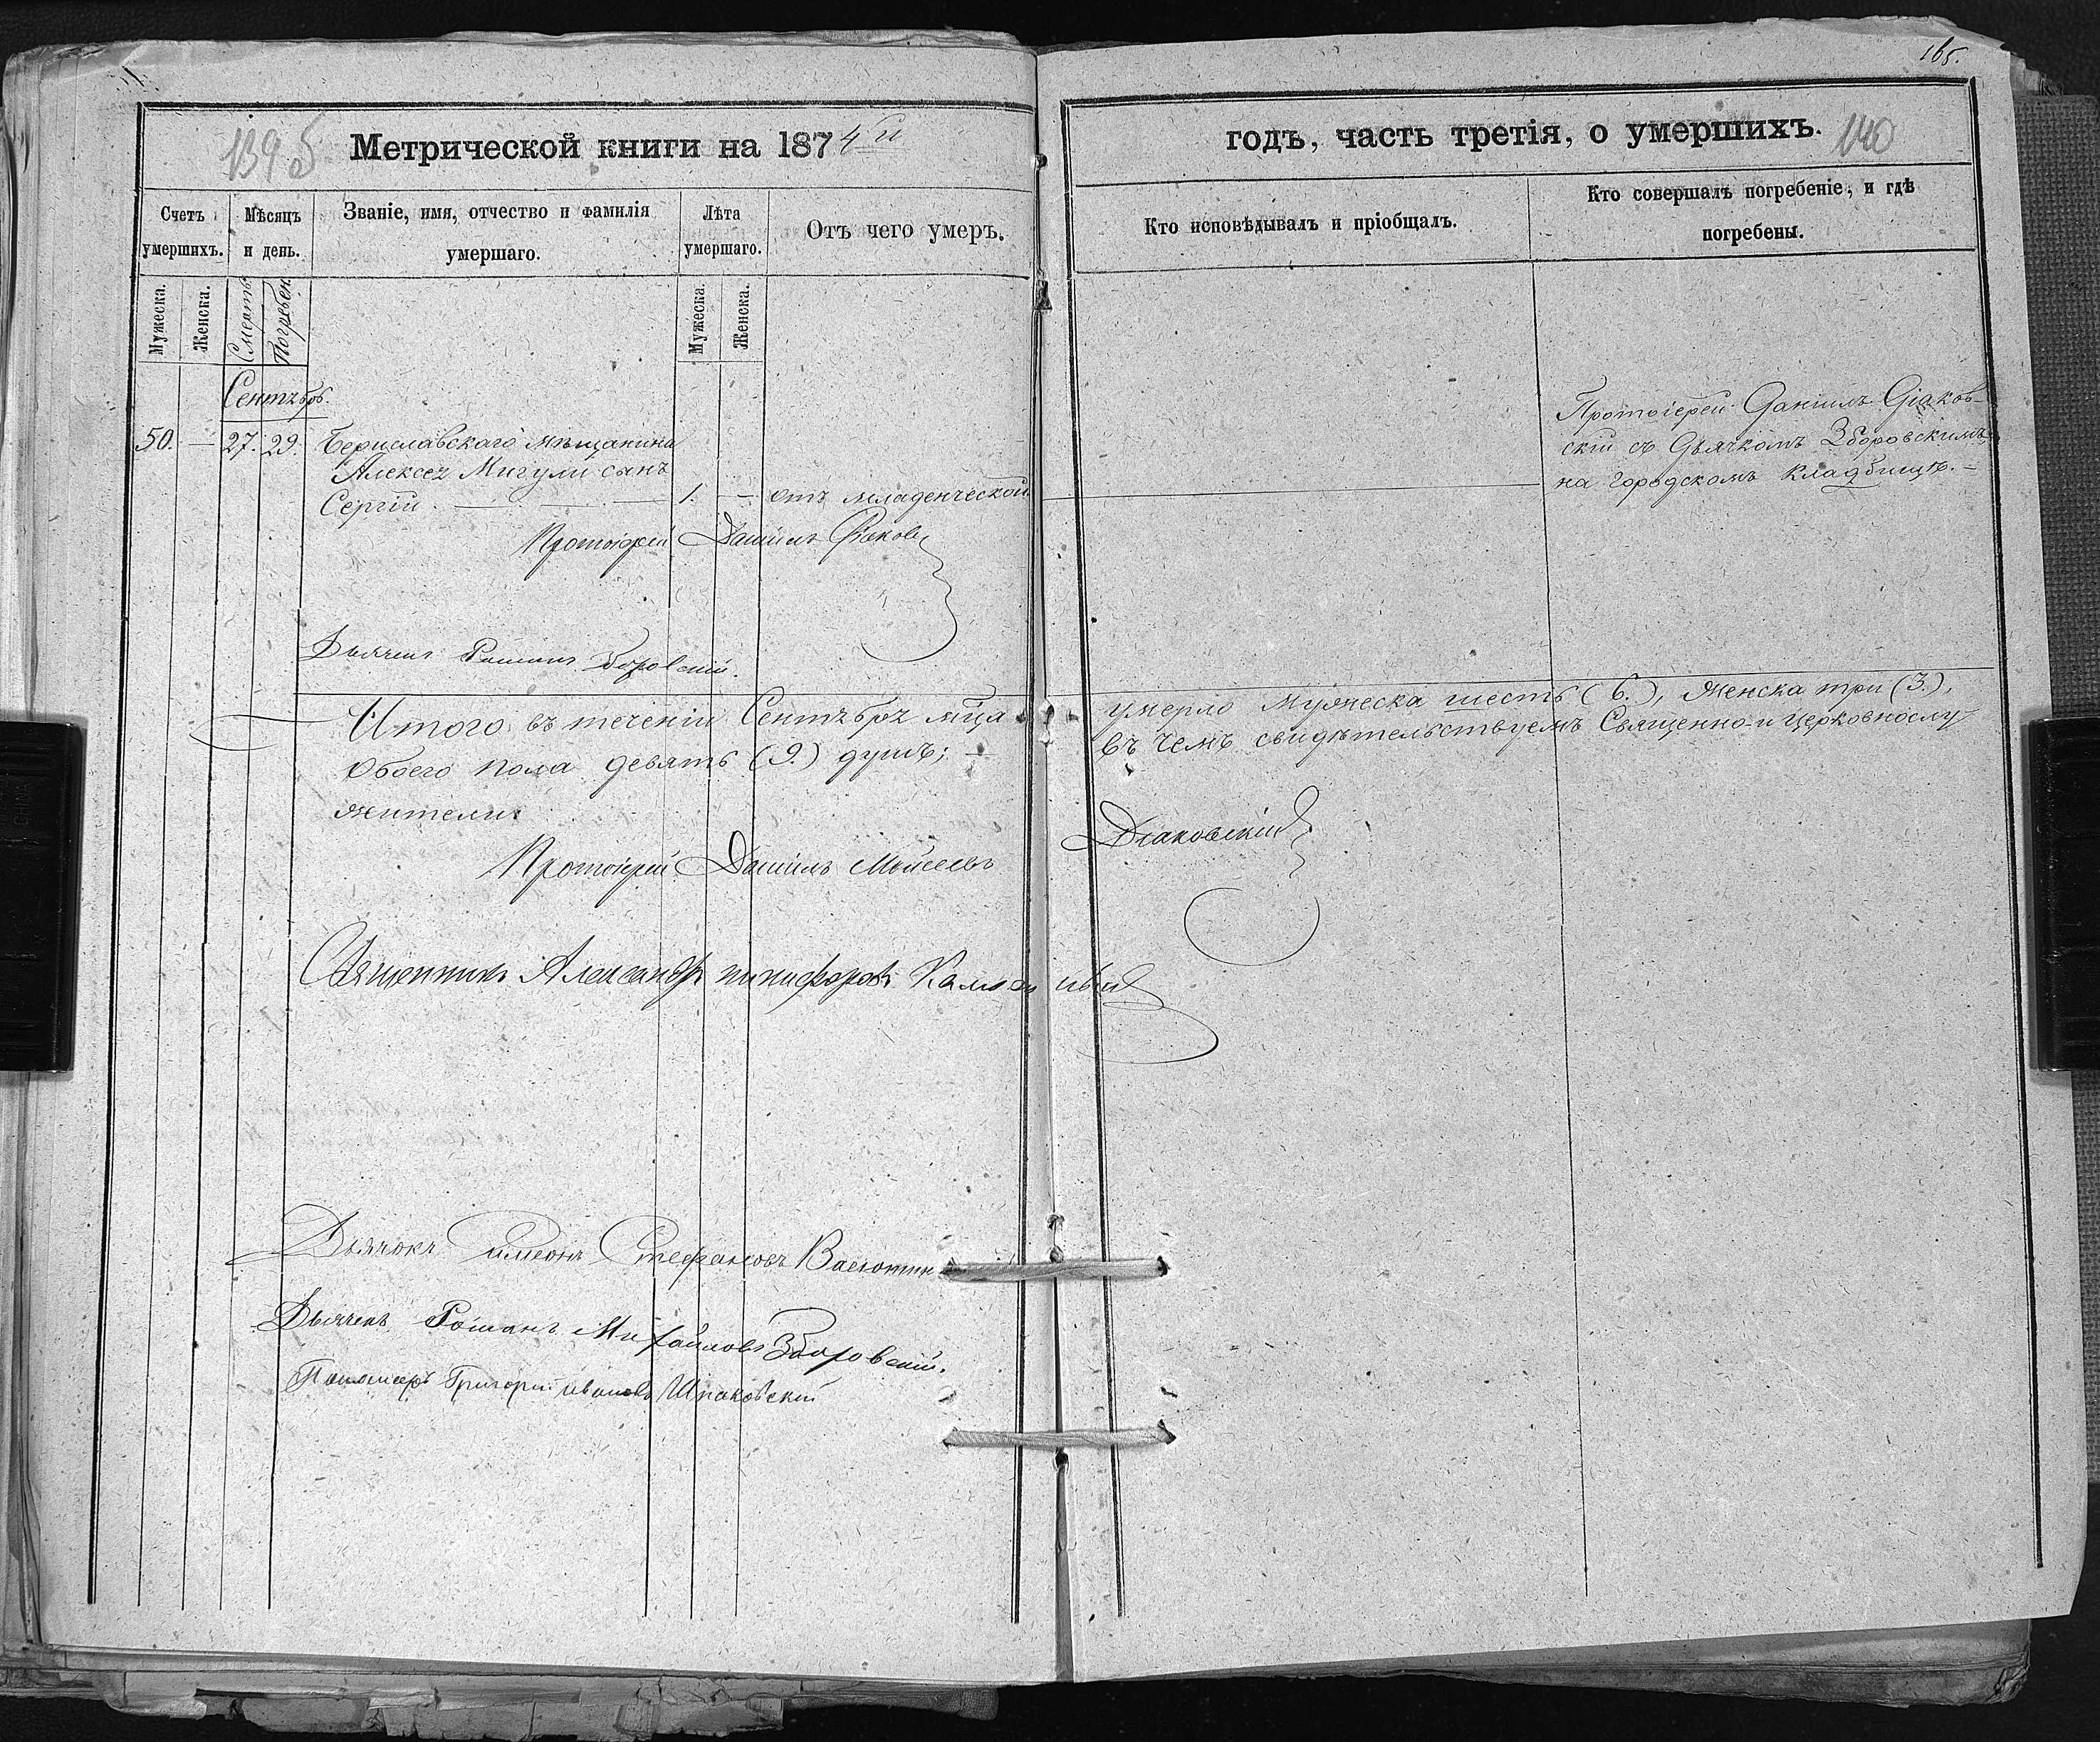 165.
139 б
Метрической книги на 1874й
годъ, часть третія, о умершихъ.
140
Счетъ умершихъ.
Мѣсяцъ и день.
Званіе, имя, отчество и фамилія умершаго.
Лѣта умершаго.
Отъ чего умеръ.
Кто исповѣдывалъ и пріобщалъ.
Кто совершалъ погребеніе, и гдѣ погребены.
Мужеска.
Женска.
Смерть
Погребен.
Мужеска.
Женска.
Сентябрь.
50. — 27. 29. Бериславскаго мѣщанина
Алексея Мигули сынъ
Сергій. — 1. — отъ младенческой.
Протоіерей Даніилъ Діаковскій съ Дьячкомъ Зборовскимъ
на городскомъ кладбищѣ. —
Протоіерей Даніилъ
Дьячекъ Романъ Зборовскій.
Итого въ теченіи Сентября мца умерло мужеска шесть (6.), женска три (3.),
обоего пола девять (9.) душъ; — въ чемъ свидѣтельствуемъ Священно и церковнослу-
жители:
Протоіерей Даніилъ Моисеевъ Діаковскій
Священникъ Александръ Никифоровъ
Дьячокъ Симеонъ Стефановъ
Дьячекъ Романъ Михайловъ Зборовскій.
Пономарь Григорій Ивановъ